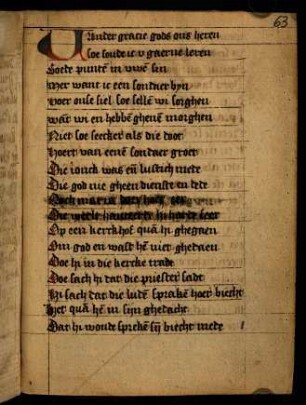 63
Under gracie gods ons heren
soe soude ic v gaerne leren
Goede punten in uwen sin
Mer want ic een sondaer byn
Voer onse siel soe sellen wi sorghen
want wi en hebben ghenen morghen
Niet soe seecker als die doot
Hoert van enen sondaer groet
Die ionck was en lustich mede
Die god nie gheen dienst en dede
Noch maria
Die werlt hanteerde hi
Op een kerckhof quam hi ghegaen
Om god en wast hem niet ghedaen
Doe hi in die kercke trade
Doe sach hi dat die priester sadt
Hi sach dat die luden spraken hoer biecht
Het quam hem in sijn ghedacht
Dat hi woude spreken sijn biecht mede